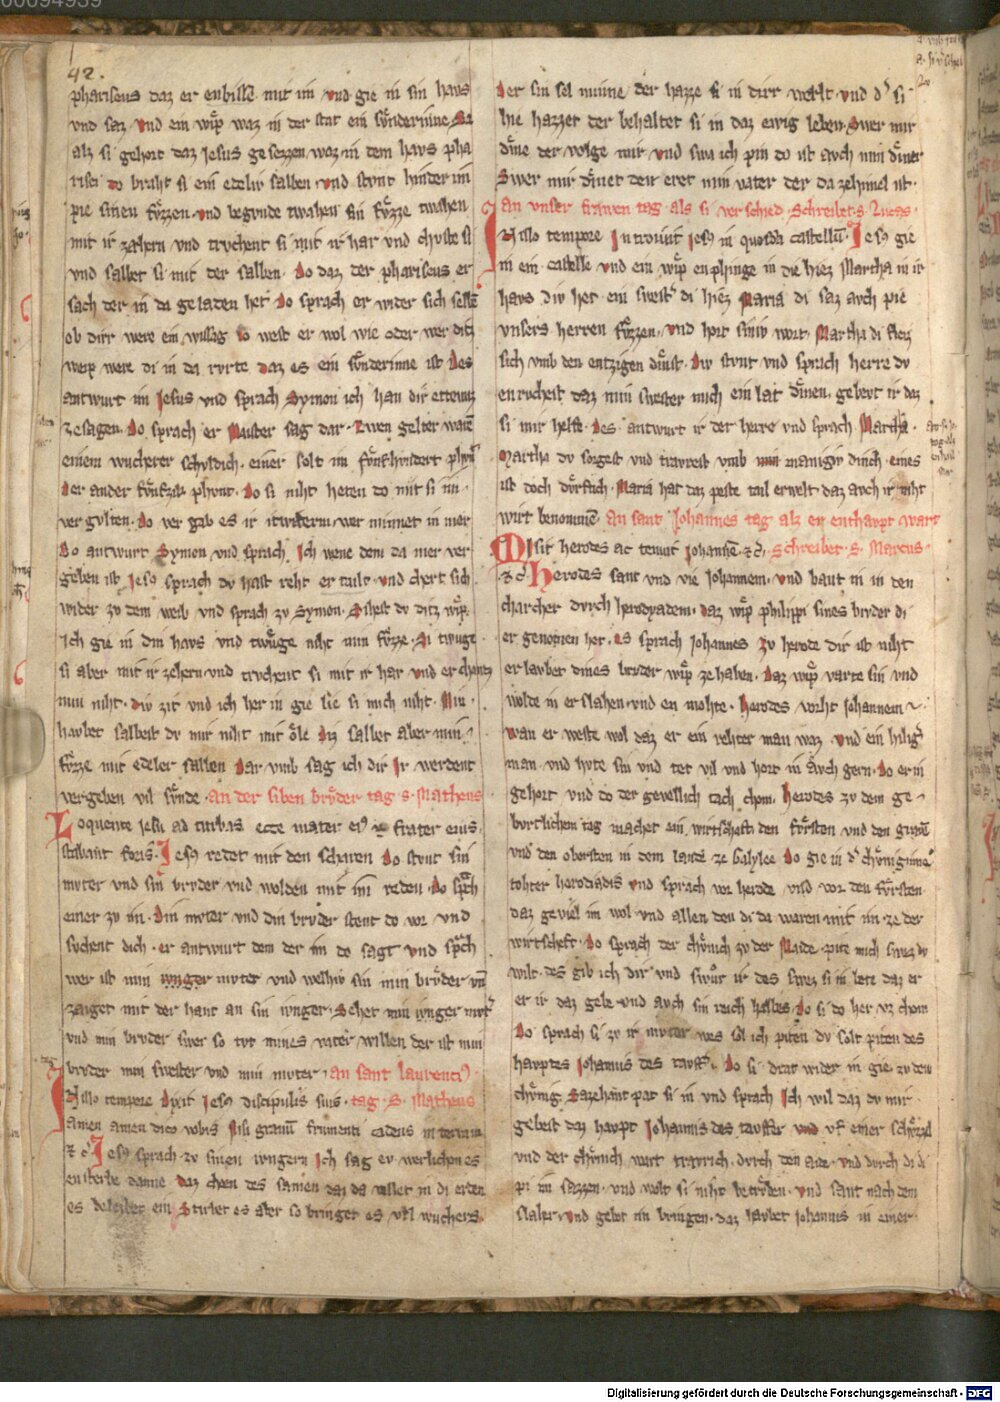 42.
phariseus daz er enbisse mit im vnd gie in sin havs
vnd saz vnd ein wip waz in der stat ein svnderinne Do
alz si gehort daz Jesus gesezzen waz in dem havs pha
risei do braht si ein edeliv salben vnd stvnt hinder im
pie sinen fvzzen vnd begvnde twahen sin fvzze twahen
mit ir zahern vnd trvchent si mit ir har vnd chvste si
vnd salbet si mit der salben Do daz der phariseus er
sach der in da geladen het do sprach er wider sich selbe
ob dirr were ein wissag so west er wol wie oder wer ditz
weip were di in da rvrte daz es ein svnderinne ist Des
antwurt im Jesus vnd sprach Symon ich han dir ettewaz
zesagen Do sprach er Maister sag dar Zwen gelter waren
einem wucherer schvldich einer solt im fvnfhvndert phvnt
Der ander fvnfzik phvnt Do si niht heten do mit si im
vergvlten Do vergab es ir itwederm wer minnet in mer
Do antwurt Symon vnd sprach Ich wene dem da mer ver
geben ist Jesus sprach dv hast reht ertailt vnd chert sich
wider zv dem weib vnd sprach zv Symon Sihest dv ditz wip
Ich gie in din havs vnd twuge niht min fvzze Si twuge
si aber mit ir zehern vnd trvchent si mit ir har vnd er chvst
min niht div zit vnd ich her in gie lie si mich niht Min
havbet salbest dv mir niht mit ole diz salbet aber min
fvzze mit edeler salben Dar vmb sag ich dir Ir werdent
vergeben vil svnde an der siben brvder tag s Matheus
Loquente jesu ad turbas ecce mater eius et fratres eius
stabant foris Jesus redet mit den scharen Do stvnt sin
mvter vnd sin brvder vnd wolden mit im reden Do sprach
einer zv im Din mvter vnd din brvder stent do vor vnd
svchent dich er antwurt dem der im do sagt vnd sprach
wer ist min mvter vnd welhiv sin min brvder vnd
zaiget mit der hant an sin ivnger Sehet min ivnger mvter
vnd min brvder swer so tvt mines vater willen der ist min
brvder min swester vnd min mvter an sant laurencius
In illo tempore Dixit Jesus discipulis suis tag S. Matheus
amen amen dico vobis Nisi granum frumenti cadens in terram
et c Jesus sprach zv sinen ivngern Ich sag ev werlichen es
ensterbe danne daz chorn des samen daz da vellet in di erden
es beleibet ein Stirbet es aber so bringet es vil wuchers
Der sin sel minne der hazze si in dirr werlt vnd der si
hie hazzet der behaltet si in daz ewig leben Swer mir
dine der volge mir vnd swa ich pin do ist avch min diner
Swer mir dinet den eret min vater der da zehimel ist
an vnser frawen tag als si verschied Schreibet s Lucas
In illo tempore Introiuit Jesus in quoddam castellum Jesus gie
in ein castelle vnd ein wip enphinge in die hiez Martha in ir
havs div het ein swester di hiez Maria di saz avch pie
vnsers herren fvzzen vnd hort siniv wort Martha di fleiz
sich vmb den emzigen dinst Div stvnt vnd sprach herre dv
enrvchest daz min swester mich ein lat dinen gebevt ir daz
si mir helfe Des antwurt ir der herre vnd sprach Martha
Martha dv sorgest vnd travrest vmb manigiv dinch eines
ist doch dvrftich Maria hat daz peste tail erwelt daz avch ir niht
wirt benomen an sant Johannes tag alz er enthavpt wart
Misit herodes ac tenuit Johannem et c Schreibet S. Marcus
et c Herodes sant vnd vie Johannem vnd bant in in den
charcher dvrch herodyadem daz wip philippi sines brvder di
er genomen het es sprach Johannes zv herode dir ist niht
erlavbet dines brvder wip ze haben Daz wip varte sin vnd
wolde in erslahen vnd en mohte Herodes vorht Johannem
wan er weste wol daz er ein rehter man waz vnd ein hiliger
man vnd hvte sin vnd tet vil vnd hort in avch gern Do er in
gehort vnd do der gevellich tach chom Herodes zv dem ge
bvrtlichem tag machet ein wirtschaft den fvrsten vnd den
vnd den obersten in dem lande ze Galylee Do gie in der chvniginne
tohter herodiadis vnd sprach vor herode vnd vor den fvrsten
daz geviel im wol vnd allen den di da waren mit im ze der
wirtscheft Do sprach der chvnich zv der Maide pite mich swez dv
wilt des gib ich dir vnd swur ir des swez si in bete daz er
er ir daz gebe vnd avch sin reich halbes Do si do her vz chom
Do sprach si zv ir mvter wes sol ich piten dv solt piten des
havptes Johannis des tavffer Do si drat wider in gie zv dem
chvnig Sazehant pat si in vnd sprach Ich wil daz dv mir
gebest daz havpt Johannis des tavffer vf einer schvzzel
vnd der chvnich wart travrich dvrch den aide vnd dvrch di di
pi im sazzen vnd wolt si niht betrvben vnd sant nach dem
slaher vnd gebot im bringen daz havbet Johannis in einer
Digitalisierung gefördert durch die Deutsche Forschungsgemeinschaft - DFG